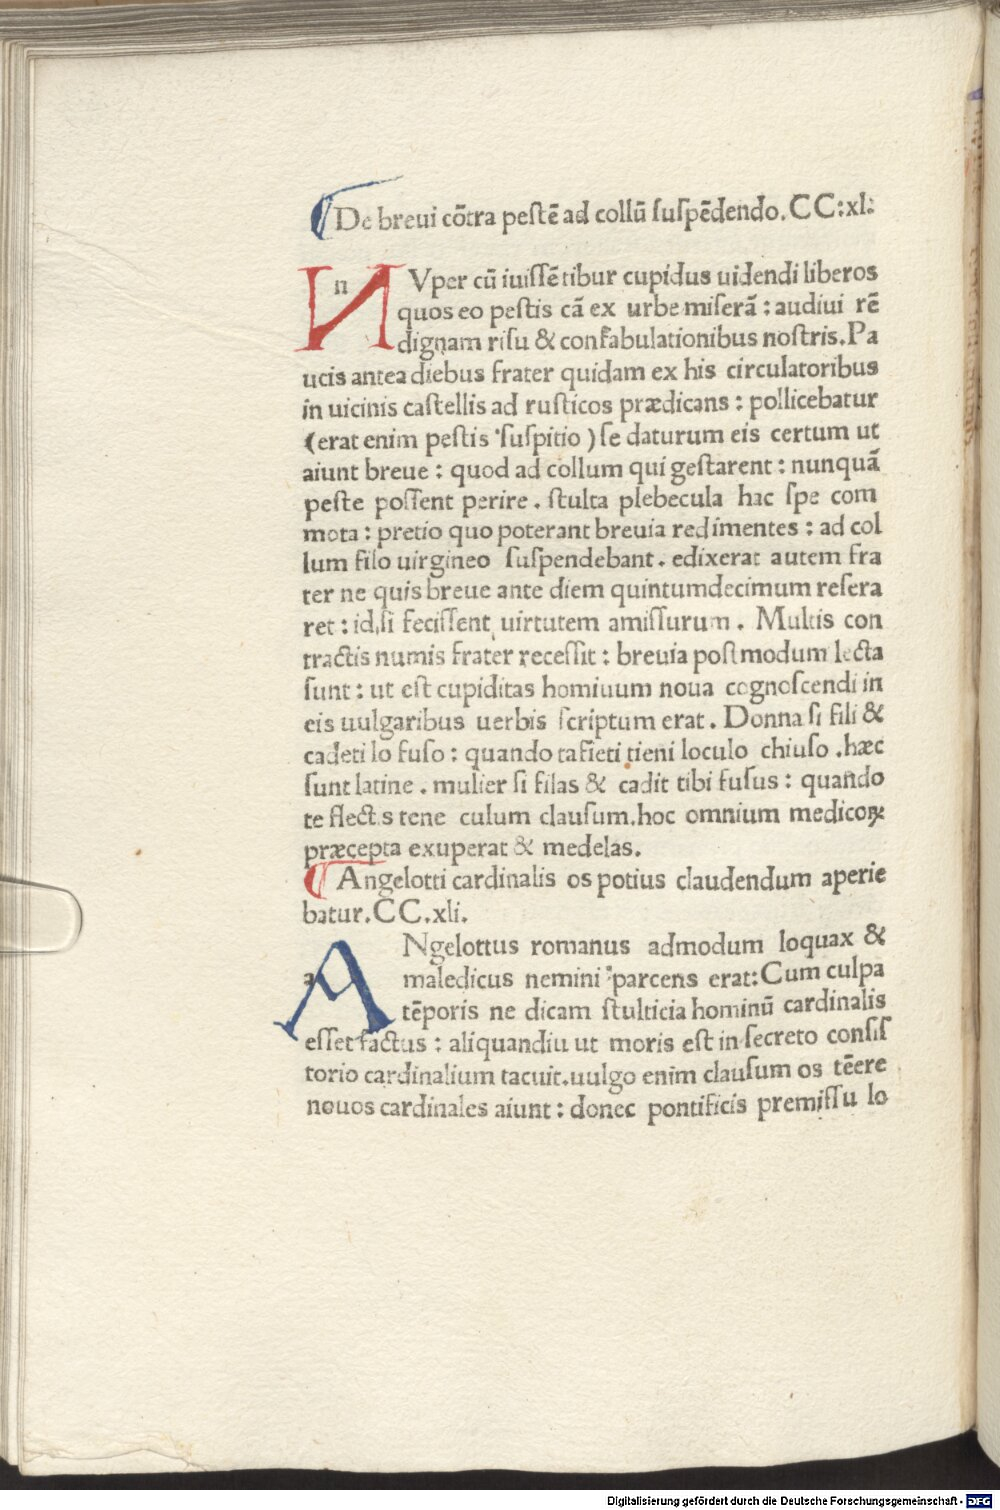 ¶ De breui cõtra peſtẽ ad collũ ſuſpẽdendo. CC:xl:
NVper cũ iuiſſẽ tibur cupidus uidendi liberos
quos eo peſtis cã ex urbe miſerã : audiui rẽ
dignam riſu & confabulationibus noſtris. Pa
ucis antea diebus frater quidam ex his circulatoribus
in uicinis caſtellis ad ruſticos prædicans : pollicebatur
(erat enim peſtis ſuſpitio) ſe daturum eis certum ut
aiunt breue : quod ad collum qui geſtarent : nunquã
peſte poſſent perire. ſtulta plebecula hac ſpe com
mota : pretio quo poterant breuia redimentes : ad col
lum filo uirgineo ſuſpendebant. edixerat autem fra
ter ne quis breue ante diem quintumdecimum reſera
ret : id, ſi feciſſent, uirtutem amiſſurum. Multis con
tractis numis frater receſſit : breuia poſtmodum lecta
ſunt : ut eſt cupiditas homiuum noua cognoſcendi in
eis uulgaribus uerbis ſcriptum erat. Donna ſi fili &
cadeti lo fuſo : quando ta fieti tieni loculo chiuſo. hæc
ſunt latine. mulier ſi filas & cadit tibi fuſus : quando
te flect s tene culum clauſum. hoc omnium medicoꝝ
præcepta exuperat & medelas.
¶ Angelotti cardinalis os potius claudendum aperie
batur. CC. xli.
ANgelottus romanus admodum loquax &
maledicus nemini parcens erat: Cum culpa
tẽporis ne dicam ſtulticia hominũ cardinalis
eſſet factus : aliquandiu ut moris eſt in ſecreto conſiſ
torio cardinalium tacuit. uulgo enim clauſum os tẽere
nouos cardinales aiunt : donec pontificis premiſſu lo
Digitalisierung gefördert durch die Deutsche Forschungsgemeinschaft - DFG